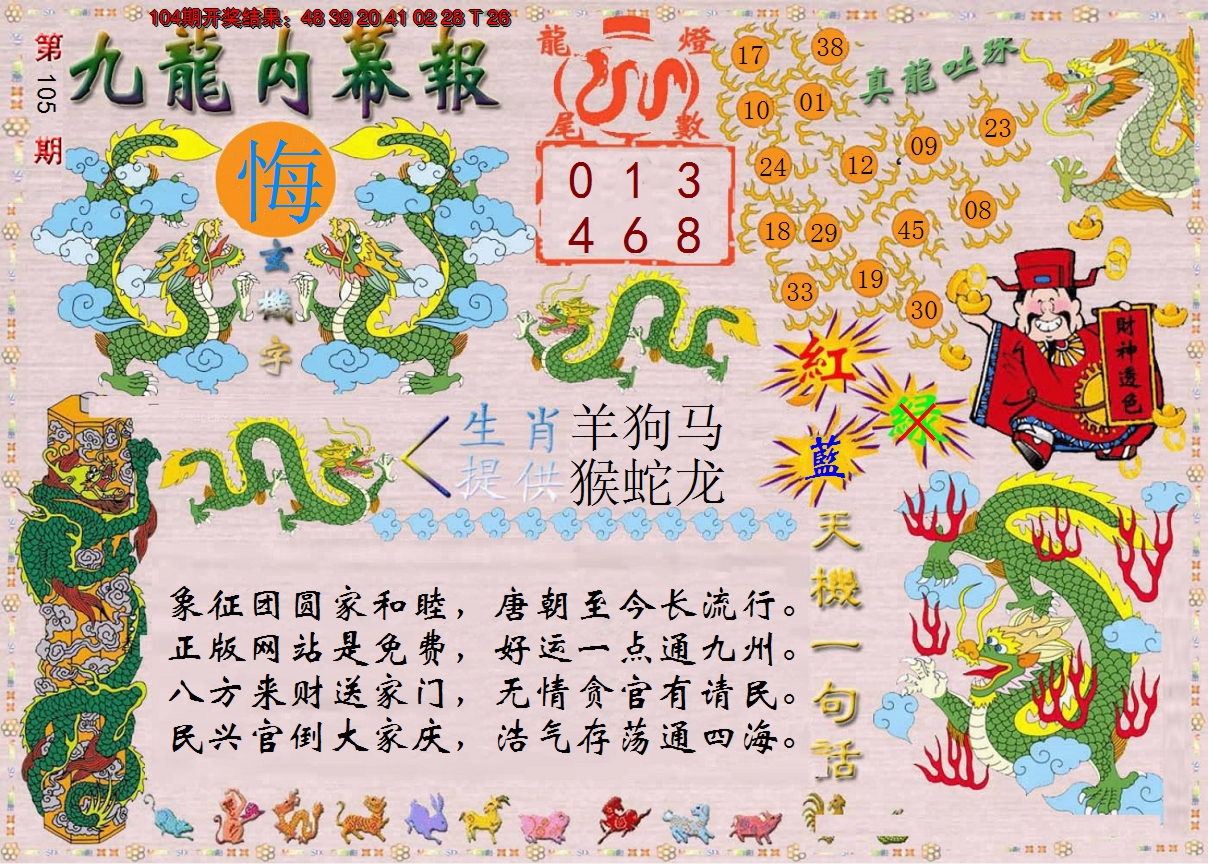 104期开奖结果：48 39 20 41 02 28 T 26
第105期
九龍内幕報
悔
玄機字
龍燈
尾數
0 1 3
4 6 8
真龍吐珠
17 38
10 01
24 12 09 23
18 29 45 08
33 19 30
財神透色
紅
绿
藍
生肖 羊狗马
提供 猴蛇龙
天機一句话
象征团圆家和睦，唐朝至今长流行。
正版网站是免费，好运一点通九州。
八方来财送家门，无情贪官有请民。
民兴官倒大家庆，浩气存荡通四海。